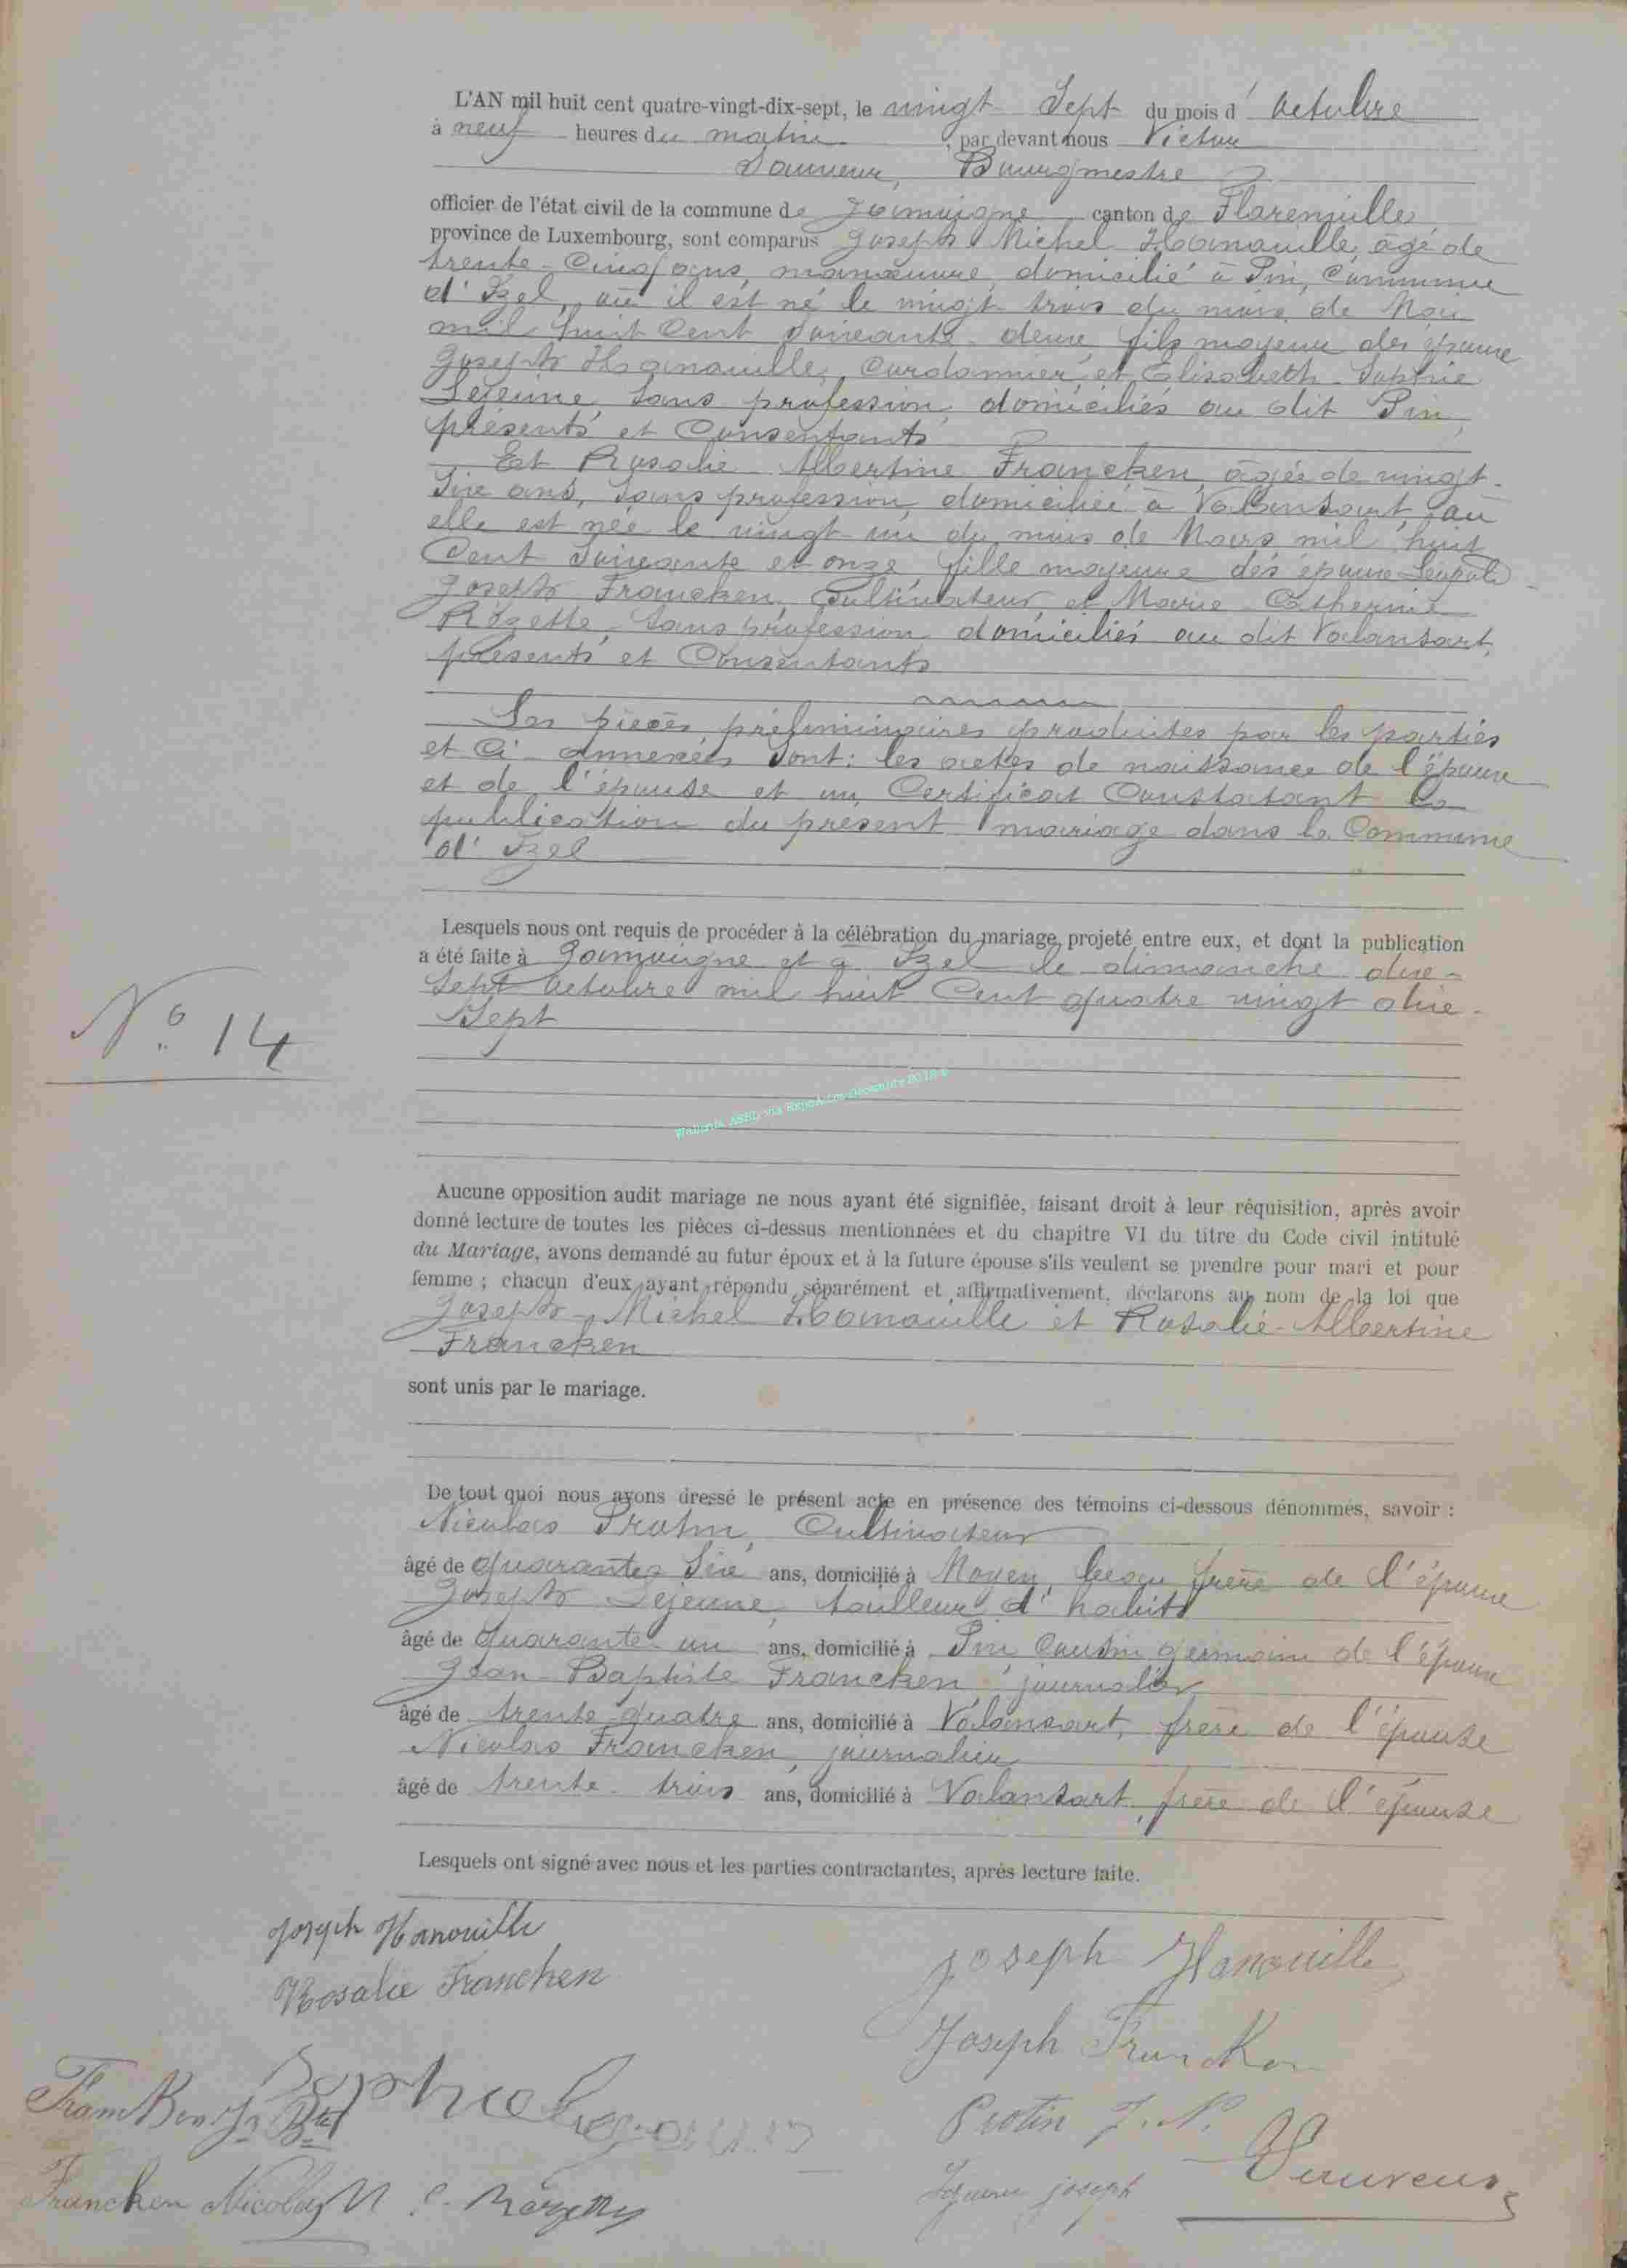 L'AN mil huit cent quatre-vingt-dix-sept, le vingt Sept du mois d' Octobre
à neuf heures du matin, par devant nous Victor
Sauveur, Bourgmestre
officier de l'état civil de la commune de Jamoigne canton de Florenville
province de Luxembourg, sont comparus Joseph Michel Hanouille, âgé de
trente-Cinq ans, manœuvre, domicilié à Pin, Commune
d'Izel, où il est né le vingt trois du mois de Mai
mil huit Cent Soixante-deux, fils majeur des époux
Joseph Hanouille, Cordonnier, et Elisabeth-Sophie
Lejeune, Sans profession, domiciliés au dit Pin,
présents et Consentants
Et Rosalie-Albertine Francken, âgée de vingt-
Six ans, Sans profession, domiciliée à Valansart, où
elle est née le vingt un du mois de Mars mil huit
Cent Soixante et onze, fille majeure des époux Léopold
Joseph Francken, Cultivateur, et Marie-Catherine
Rozette, Sans profession domiciliés au dit Valansart,
présents et Consentants
Les pièces préliminaires produites par les parties
et Ci-annexées Sont: les actes de naissance de l'époux
et de l'épouse et un Certificat Constatant la
publication du présent mariage dans la Commune
d'Izel
Lesquels nous ont requis de procéder à la célébration du mariage projeté entre eux, et dont la publication
a été faite à Jamoigne et à Izel le dimanche dix-
Sept Octobre mil huit Cent quatre vingt dix-
Sept
N° 14
Wallonia ASBL via
Aucune opposition audit mariage ne nous ayant été signifiée, faisant droit à leur réquisition, après avoir
donné lecture de toutes les pièces ci-dessus mentionnées et du chapitre VI du titre du Code civil intitulé
du Mariage, avons demandé au futur époux et à la future épouse s'ils veulent se prendre pour mari et pour
femme ; chacun d'eux ayant répondu séparément et affirmativement, déclarons au nom de la loi que
Joseph-Michel Hanouille et Rosalie-Albertine
Francken
sont unis par le mariage.
De tout quoi nous avons dressé le présent acte en présence des témoins ci-dessous dénommés, savoir :
Nicolas Protin, Cultivateur
âgé de quarante Six ans, domicilié à Moyen, beau frère de l'époux
Joseph Lejeune, tailleur d'habits
âgé de quarante un ans, domicilié à Pin, Cousin germain de l'époux
Jean-Baptiste Francken, journalier
âgé de trente-quatre ans, domicilié à Valansart, frère de l'épouse
Nicolas Francken, journalier
âgé de trente-trois ans, domicilié à Valansart, frère de l'épouse
Lesquels ont signé avec nous et les parties contractantes, après lecture faite.
Joseph Hanouille
Joseph Hanouille
Rosalie Francken
Joseph Francken
Sophie Lejeune
Francken Jn Bte
Protin J. N.
Sauveur
Lejeune joseph
Francken Nicolas
M. C. Rozette